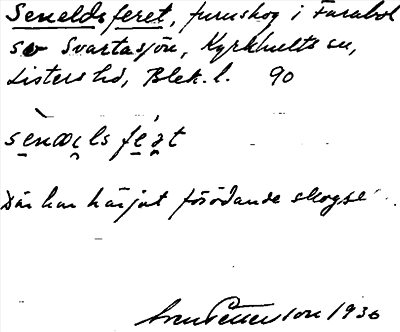 Seneldsferet, furuskog i Farabol
sv Svartasjön, Kyrkhults sn,
Listers hd, Blek. l. 90
sènæ̀ls féʹrət
Där har härjat förödande skogse
Sven Petterson 1936